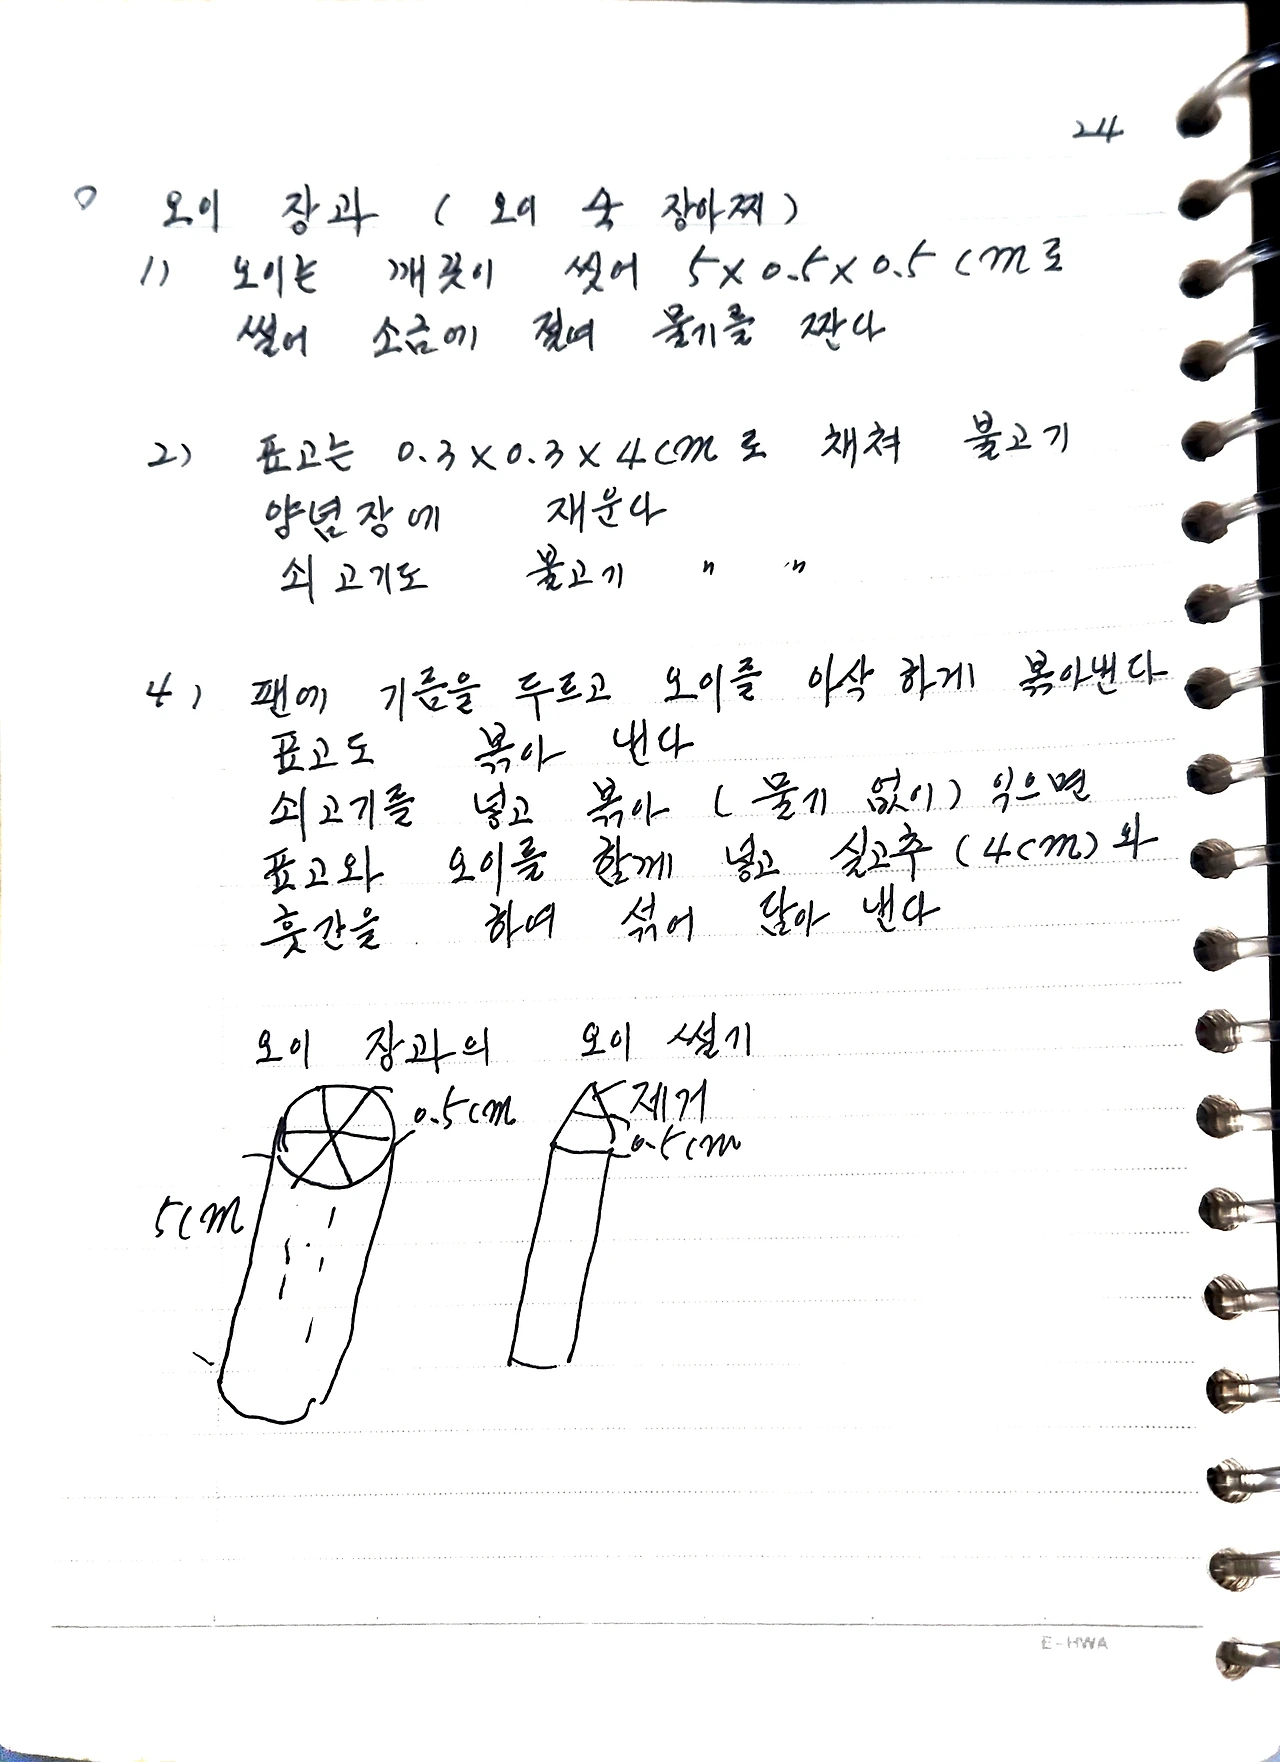 24
○ 오이 장과 ( 오이 숙 장아찌 )
1) 오이는 깨끗이 씻어 5×0.5×0.5 cm로
썰어 소금에 절여 물기를 짠다
2) 표고는 0.3×0.3×4cm로 채쳐 불고기
양념장에 재운다
쇠고기도 불고기 〃 〃
4) 팬에 기름을 두르고 오이를 아삭하게 볶아낸다
표고도 볶아 낸다
쇠고기를 넣고 볶아 ( 물기 없이 ) 익으면
표고와 오이를 함께 넣고 실고추 (4cm) 와
훗간을 하여 섞어 담아 낸다
오이 장과의 오이 썰기
0.5cm
제거
0.5cm
5cm
E-HWA